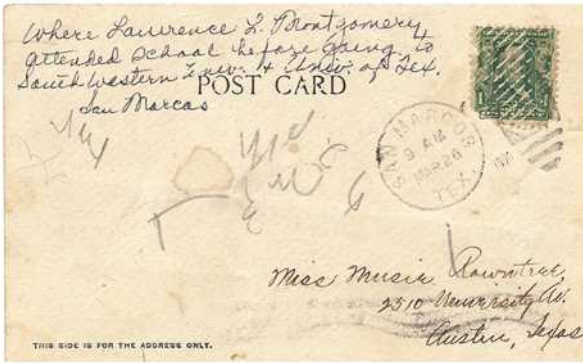 Where Lawrence L. Montgomery
attended school before going to
South Western Univ. & Univ. of Tex.
San Marcos
POST CARD
SAN MARCOS
9 AM
MAR 26
TEX.
1
Miss Musie Rowntree,
2510 University Av.
Austin, Texas
THIS SIDE IS FOR THE ADDRESS ONLY.